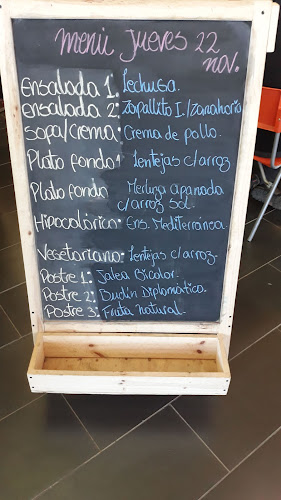 menú jueves 22
nov.
Ensalada 1: Lechuga
ensalada 2: Zapallito I./zanahoria
Sopa/crema: Crema de pollo.
Plato fondo: Lentejas c/arroz
Plato fondo Merluza apanada
c/arroz sol.
Hipocalórico: Ens. Mediterránea.
Vegetariano: Lentejas c/arroz
Postre 1: Jalea Bicolor.
Postre 2: Budín Diplomático.
Postre 3: Fruta natural.